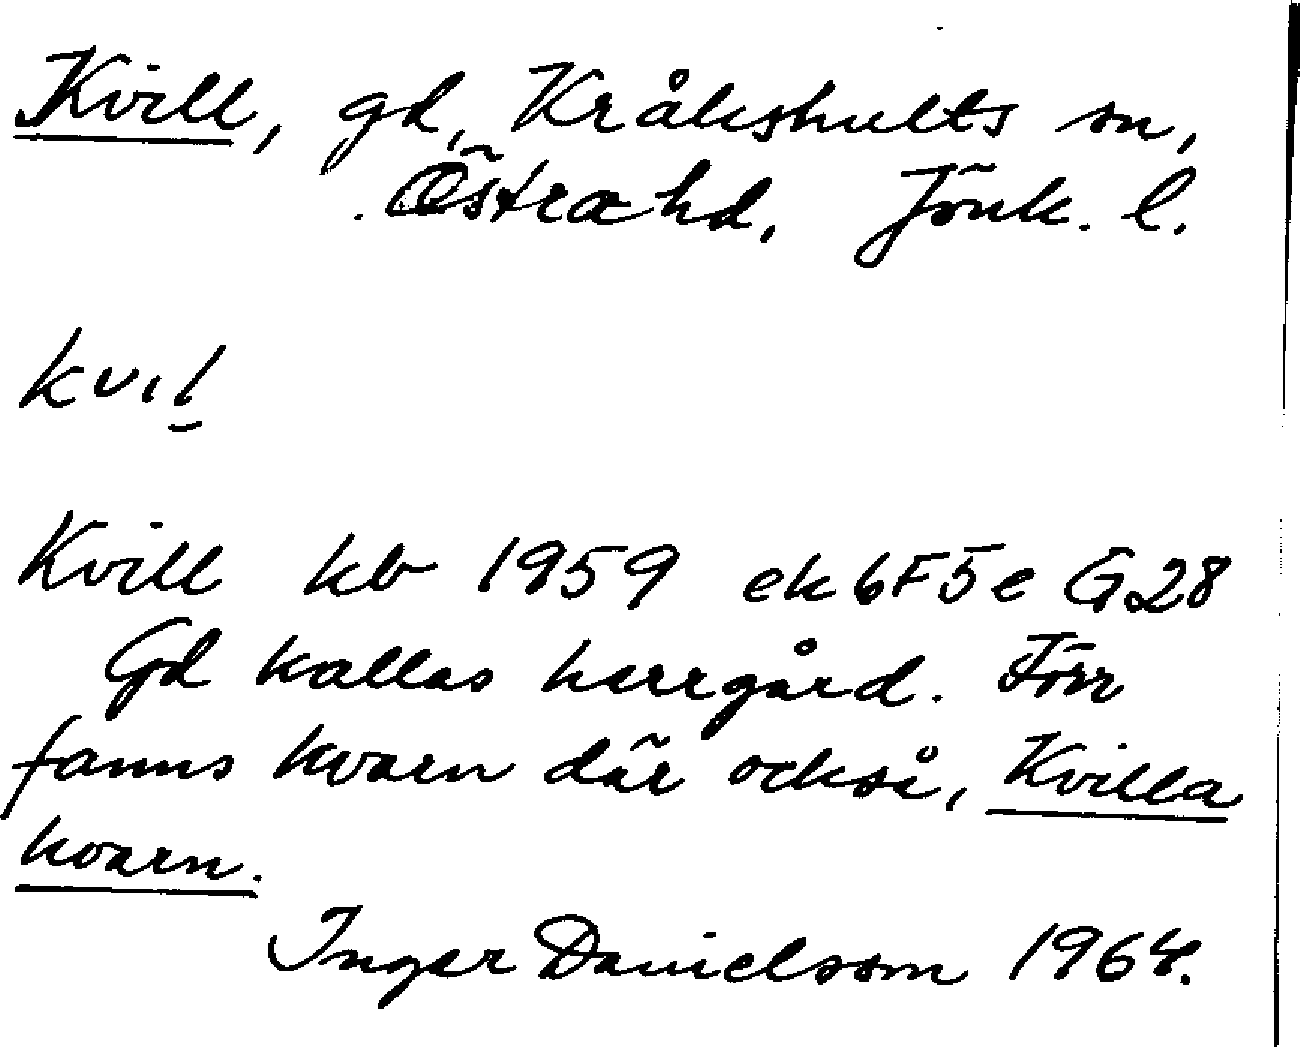 Kvill, gd, Kråkshults sn,
Östra hd, Jönk. l.
kvıl̲
Kvill kb 1959 ek 6F5e G28
Gd kallas herrgård. Förr
fanns kvarn där också, Kvilla
kvarn.
Inger Danielsson 1964.